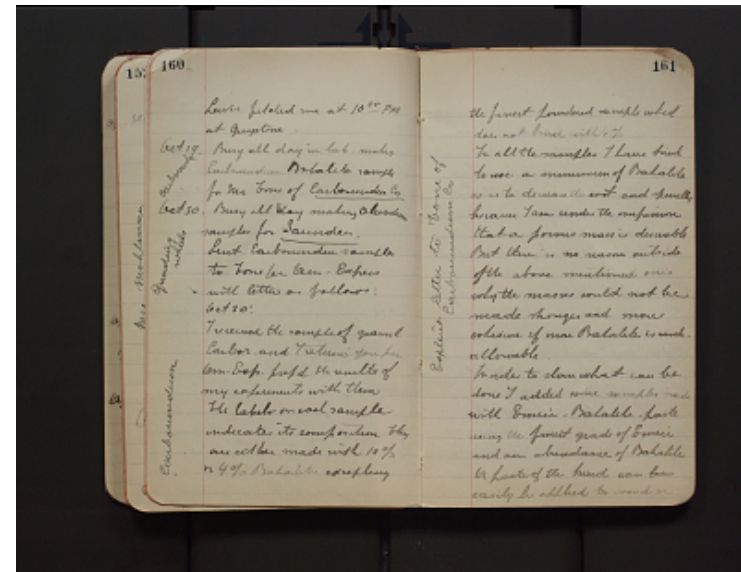 157
160
Louis fetched me at 10 PM
at Gunstone
Oct 29. Busy all day in lab making
Carborundum Bakalite sample
for Mr Tone of Carborundum Co
Oct 30. Busy all day making Abrasive
samples for Saunders.
Sent Carborundum samples
to Tone per Am. Express
with letter as follows:
Oct 30:
I received the samples of
Carbor and I return you per
Am. Exp. prep'd the results of
my experiments with them
The labels on each sample
indicates its composition They
are either made with 10%
or 4% Bakalite excepting
Grinding
wheels
Carborundum
161
the finest powdered sample which
does not bind with 4%
In all the samples I have tried
to use a minimum of Bakalite
so as to decrease cost and
because I am under the impression
that a porous mass is desirable
But there is no reason outside
of the above mentioned ones
why the masses could not be
made stronger and more
cohesive if more Bakalite is
allowable.
In order to show what can be
done I added some samples made
with Emerie - Bakalite - paste
using the finest grade of Emerie
and an abundance of Bakalite
A paste of the kind can be
easily be applied to wood or
Explicit letter to Tone of
Carborundum Co